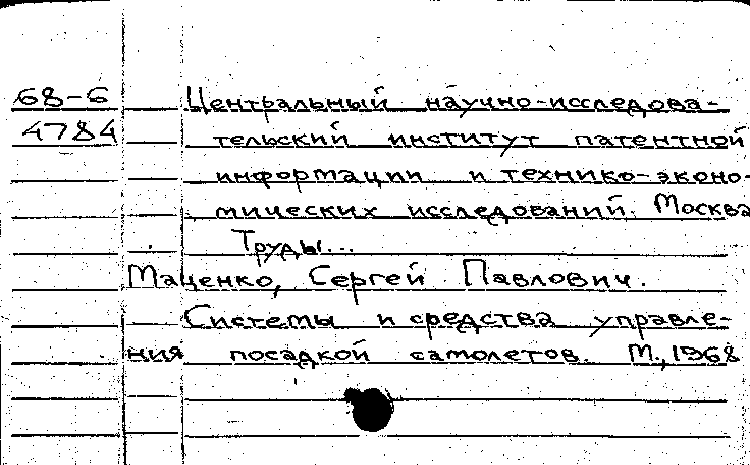 68-6 Центральный научно-исследова-
4784 тельский институт патентной
информации и технико-эконо-
мических исследований. Москва
Труды...
Маценко, Сергей Павлович.
Системы и средства управле-
ния посадкой самолетов. М., 1968